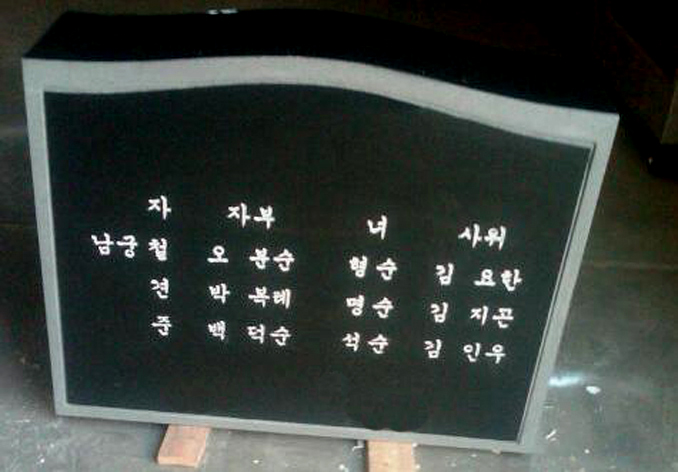 자 자부 녀 사위
남궁 철 오 분순 형순 김 요한
견 박 복례 명순 김 지곤
준 백 덕순 석순 김 인우